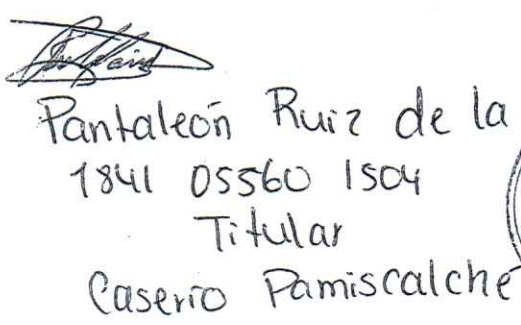 Pantaleón Ruiz de la
1841 05560 1504
Titular
Caserio Pamiscalché